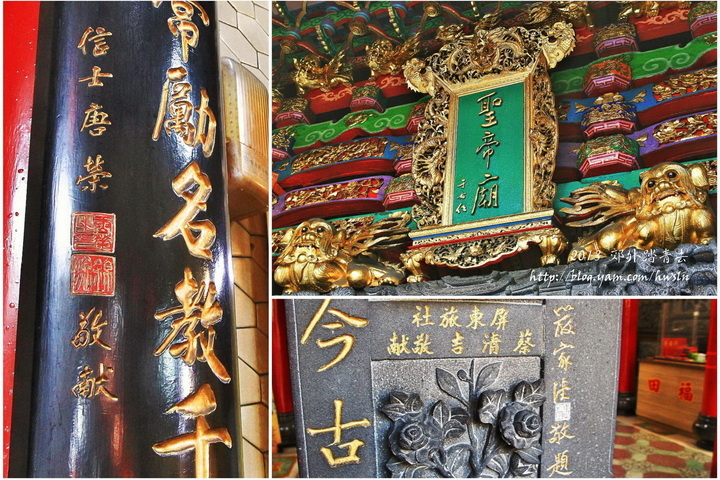 常勵名教千
信士唐榮
敬獻
聖帝廟
于右任
2013 郊外踏青去
http://blog.yam.com/hwslu
今古
屏東旅社
蔡清吉敬獻
家
敬題
福田